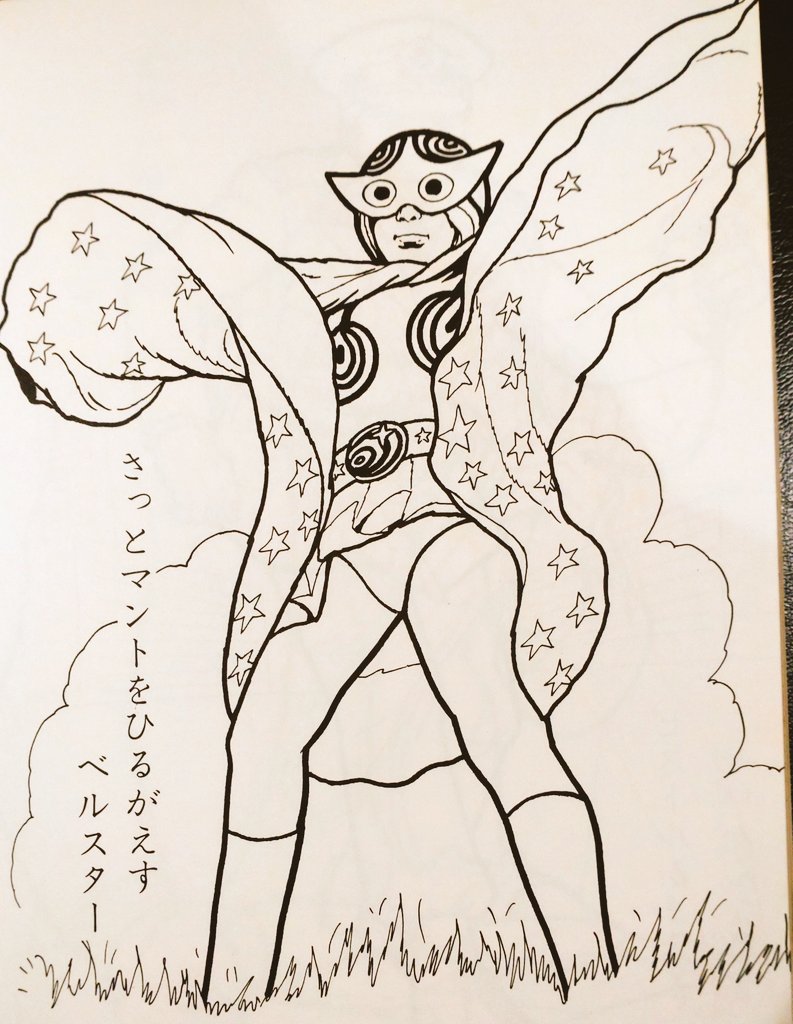 さっとマントをひるがえす
ベルスター